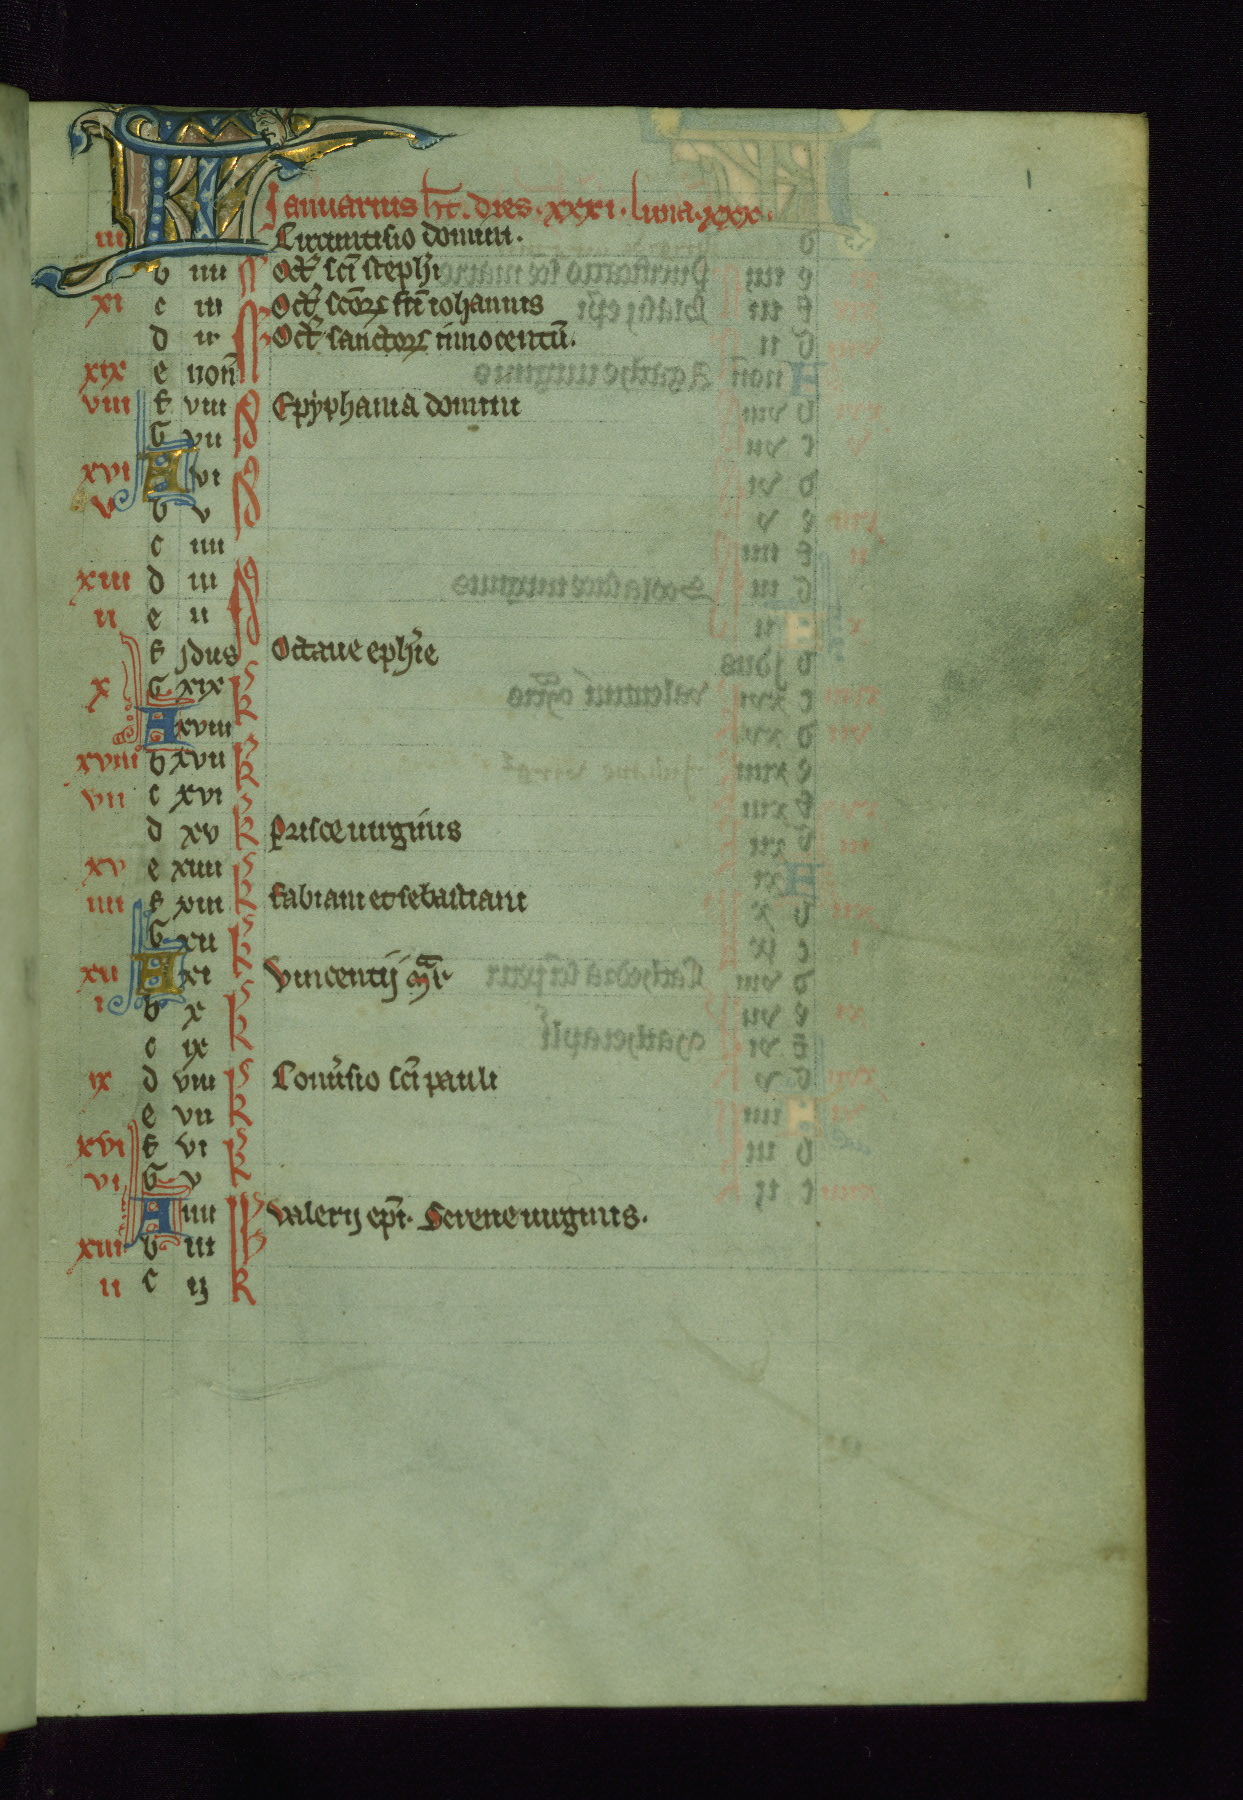 KL Januarius h̄t. dies. xxxi. luna. xxx.
iii Circumcisio domini.
b iiii N Oct̄ sc̄i steph̄i
xi c iii Oct̄ sc̄oꝝ st̄i iohannis
d ii N Oct̄ sanctoꝝ innocentū.
xix e non̄
viii f viii Epyphania domini
G vii
xvi A vi
v b v
c iiii
xiii d iii
ii e ii
f jdus Octaue eph̄ie
x G xix K
A xviii
xviii b xvii K
vii c xvi
d xv K Prisce uirginis
xv e xiiii
iiii f xiii K fabiani et sebastiani
G xii
xii A xi K Vincentij mr̄
i b x
c ix K
ix d viii Conu̓sio sc̄i pauli
e vii K
xvi f vi
vi G v K
A iiii Valerij ep̄i. Serene uirginis.
xiii b iii
ii c ij K